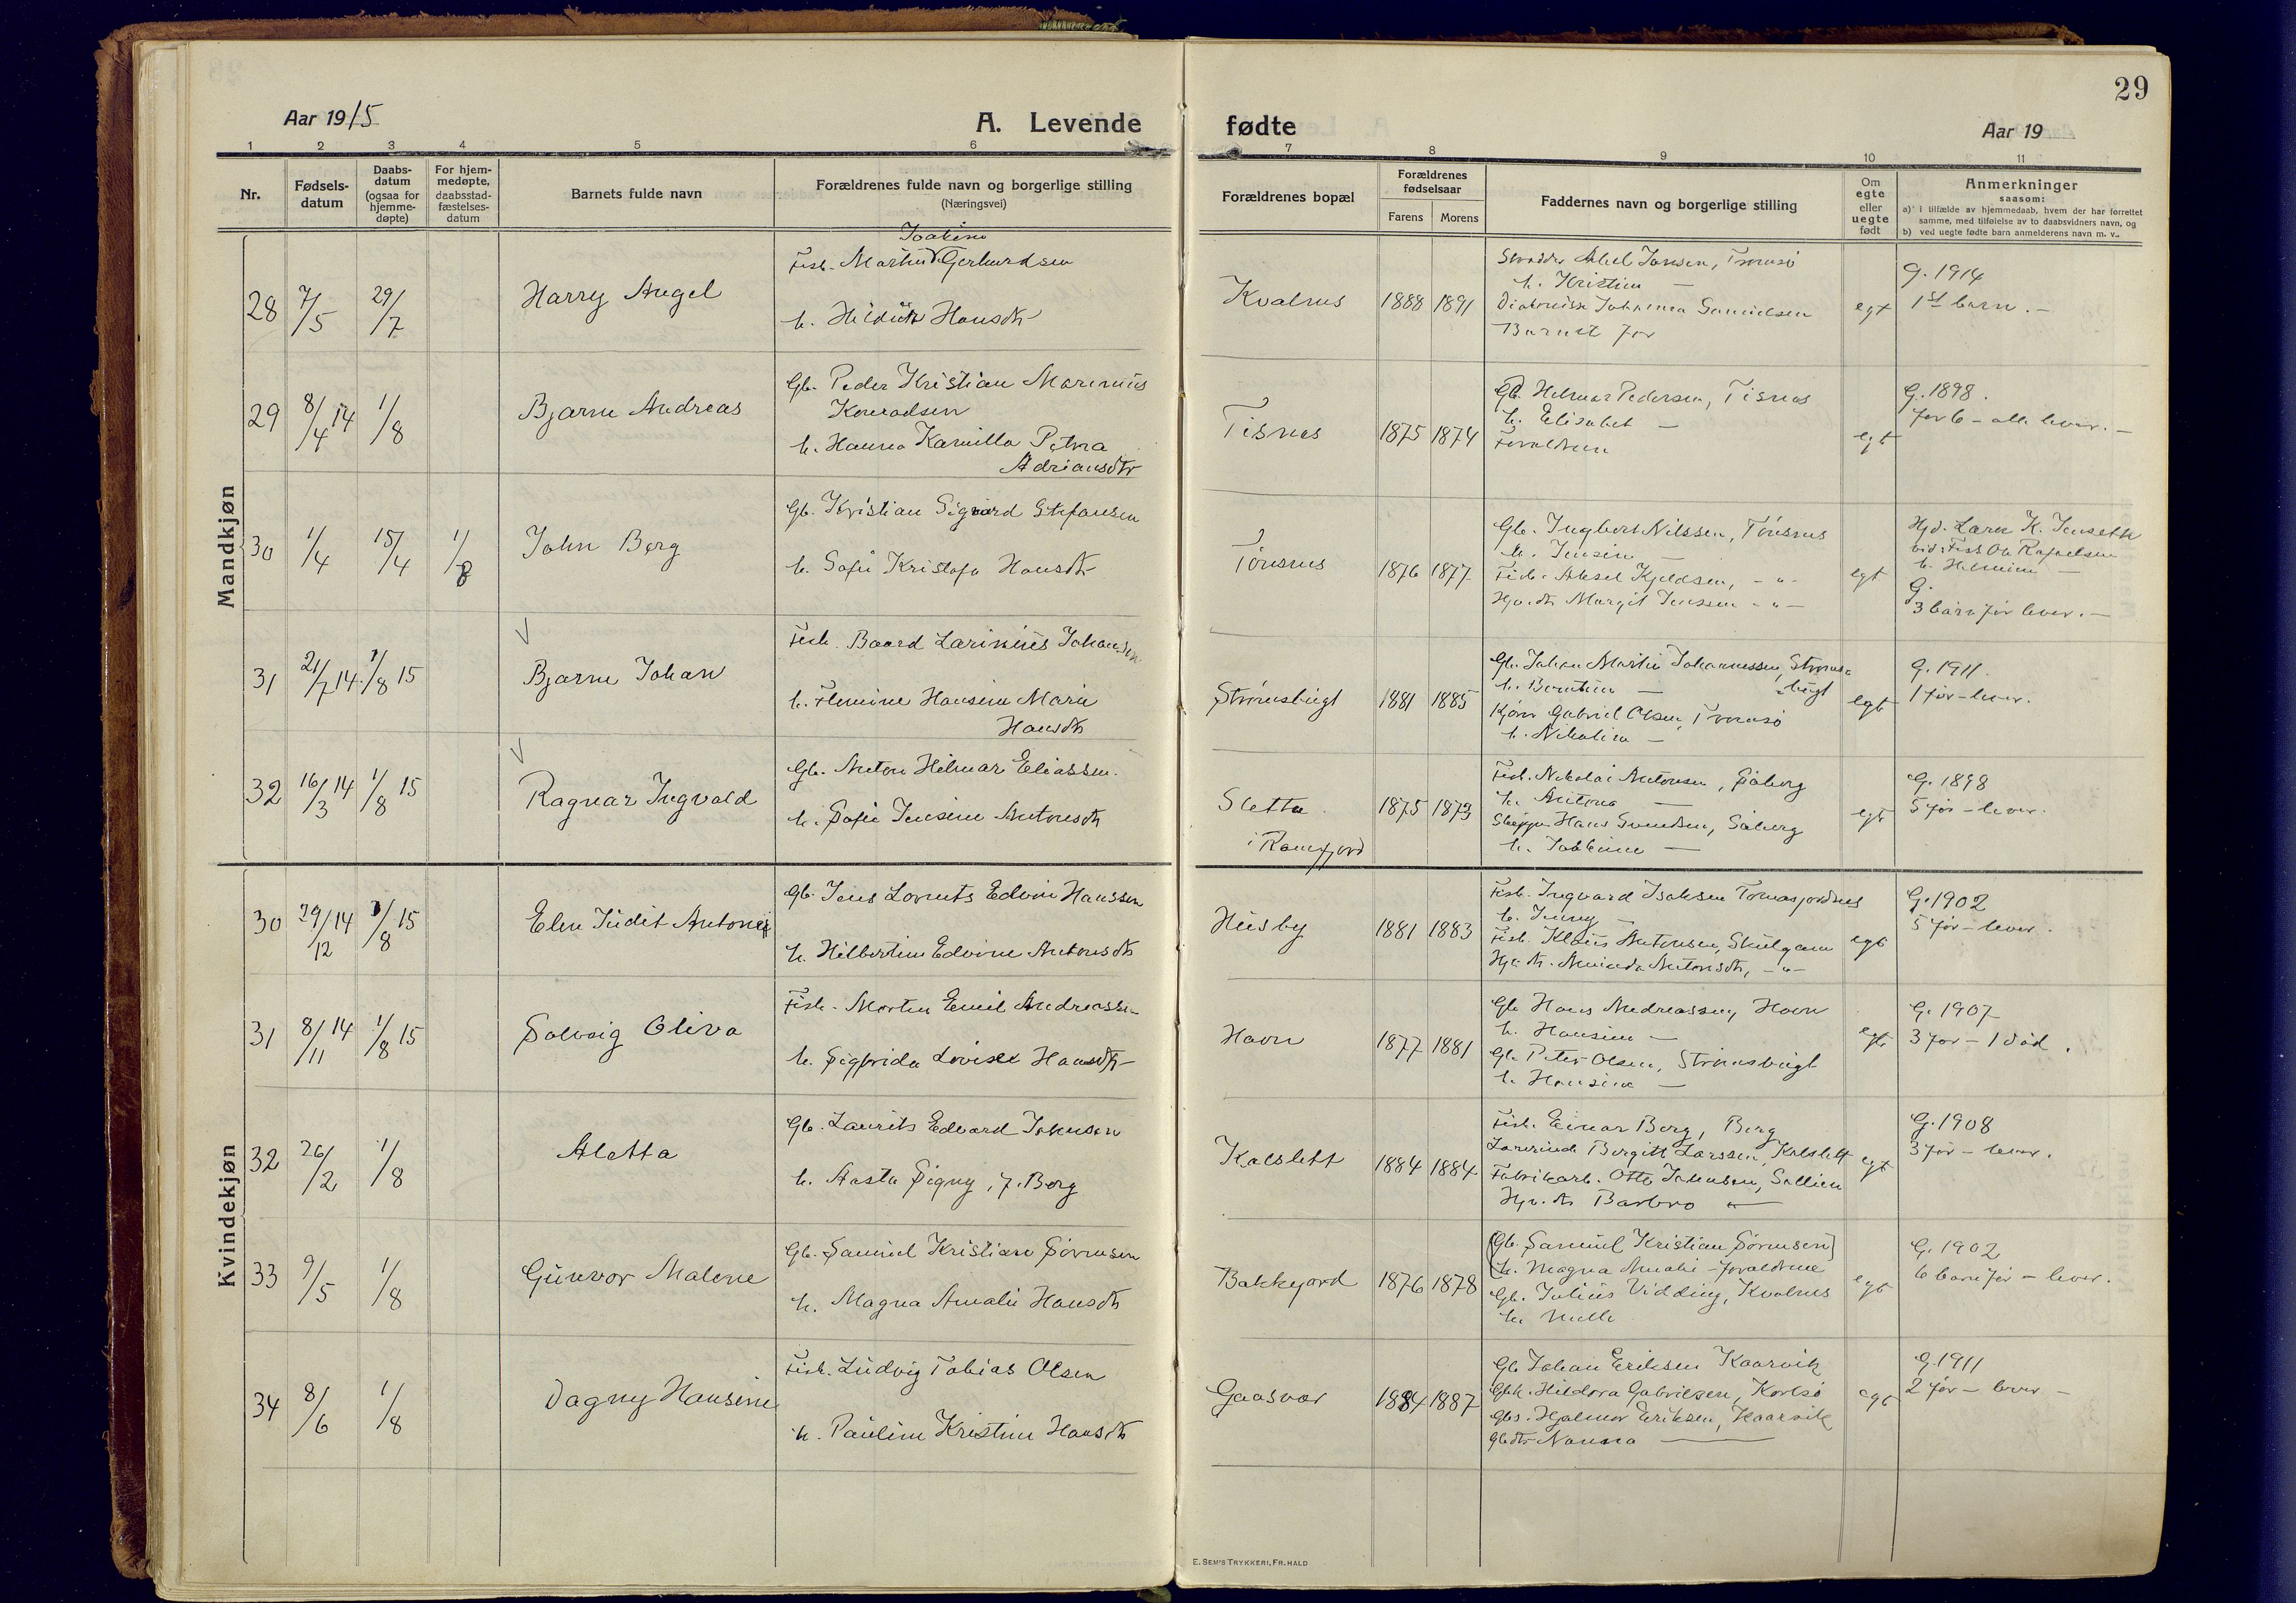 29
Aar 1915
A. Levende
fødte
Aar 19
1 2 3 4 5 6 7 8 9 10 11
Nr.
Fødsels-
datum
Daabs-
datum
(ogsaa for
hjemme-
døpte)
For hjem-
medøpte,
daabsstad-
fæstelses-
datum
Barnets fulde navn
Forældrenes fulde navn og borgerlige stilling
(Næringsvei)
Forældrenes bopæl
Forældrenes
fødselsaar
Farens Morens
Faddernes navn og borgerlige stilling
Om
egte
eller
uegte
født
Anmerkninger
saasom:
a) i tilfælde av hjemmedaab, hvem der har forrettet
samme, med tilføielse av to daabsvidners navn, og
b) ved uegte fødte barn anmelderens navn m. v.
Mandkjøn
28 7/5 29/7
Harry Angel
Fisk. Martin Gerhardsen
h. Hansdtr
Kvalnes
1888 1891
Abel Jansen, Tromsø
h. Kristine —
Diakonisse Johanna Samuelsen
Barnets far
egt
G. 1914
1st barn. –
29 8/4 14 1/8
Bjarne Andreas
Gb. Peder Kristian Marenius
Konradsen
h. Hanna Kamilla Petra
Adriansdtr
Tisnes
1875 1874
Gb. Hilmar Pedersen, Tisnes
h. Elisabet —
Forældrene
egt
G. 1898.
før 6 – alle lever. –
30 1/4 15/4 1/8
John Berg
Gb. Kristian Sigvard Stefansen
h. Sofie Kristofa Hansdtr
Tønsnes
1876 1877
Gb. Ingbert Nilssen, Tønsnes
h. Jensine —
Fisk. Aksel Kjeldsen, – " –
Margit Jenssen – " –
egt
Hjd. Lærer K. Jenseth
vid: Fisk Ole Rafaelsen
h. Helmine —
G.
3 barn før lever. –
31 21/7 14. 1/8 15
Bjarne Johan
Fisk. Baard Larinius Johansen
h. Hansine Marie
Hansdtr
Strømsbugt
1881 1885
Gb. Johan Martin Johannessen, Strøms-
h. Berntine — bugt
Gabriel Olsen, Tromsø
h. Nikoline —
egt
G. 1911.
1 før – lever.
32 16/3 14 1/8 15
Ragnar Ingvald
Gb. Anton Hilmar Eliassen.
h. Sofie Jensine Antonsdtr
Sletta
i Ramfjord
1875 1873
Fisk. Nikolai Antonsen, Søberg
h. Antona —
Hans Svendsen, Søberg
h. Jakkine —
egt
G. 1898
5 før – lever.
Kvindekjøn
30 29/12 14 1/8 15
Elen Judit Antonie
Gb. Jens Lornts Edvin Hanssen
h. Hilbertine Edvine Antonsdtr
Husby
1881 1883
Fisk. Ingvard Isaksen Tomasjordnes
h. Jenny —
Fisk. Klaus Antonsen, Skulgam
Antonsdtr, – " –
egt
G. 1902
5 før – lever.
31 8/11 14 1/8 15
Solveig Oliva
Fisk. Morten Emil Andreassen
h. Sigfrida Lovise Hansdtr
Havn
1877 1881
Gb. Hans Andreassen, Havn
h. Hansine —
Gb. Peter Olsen, Strømsbugt
h. Hansine —
egt
G. 1907
3 før – 1 død.
32 26/2 1/8
Aletta
Gb. Laurits Edvard Johnsen
h. Aasta Signy, f. Berg
Kalslett
1884 1884
Fisk. Einar Berg, Berg
Lærerinde Bergitt Larssen, Kalslett
Fabrikarb. Otto Johnsen,
Barbro "
egt
G. 1908
3 før – lever.
33 9/5 1/8
Gunvor Malene
Gb. Samuel Kristian Sørensen
h. Magna Amalie Hansdtr
Bakkejord
1876 1878
(Gb. Samuel Kristian Sørensen)
(h. Magna Amalie – forældrene
Gb. Julius Vidding, Kvalnes
h. Mille
egt
G. 1902
6 barn før – lever.
34 8/6 1/8
Dagny Hansine
Fisk. Ludvig Tobias Olsen
h. Pauline Kristine Hansdtr
Gaasvær
1884 1887
Gb. Johan Eriksen Kaarvik
Hildora Gabrielsen,
Gbs. Hjalmar Eriksen, Kaarvik
Gbdtr Nanna —
egt
G. 1911
2 før – lever –
E. SEM'S TRYKKERI, FR. HALD